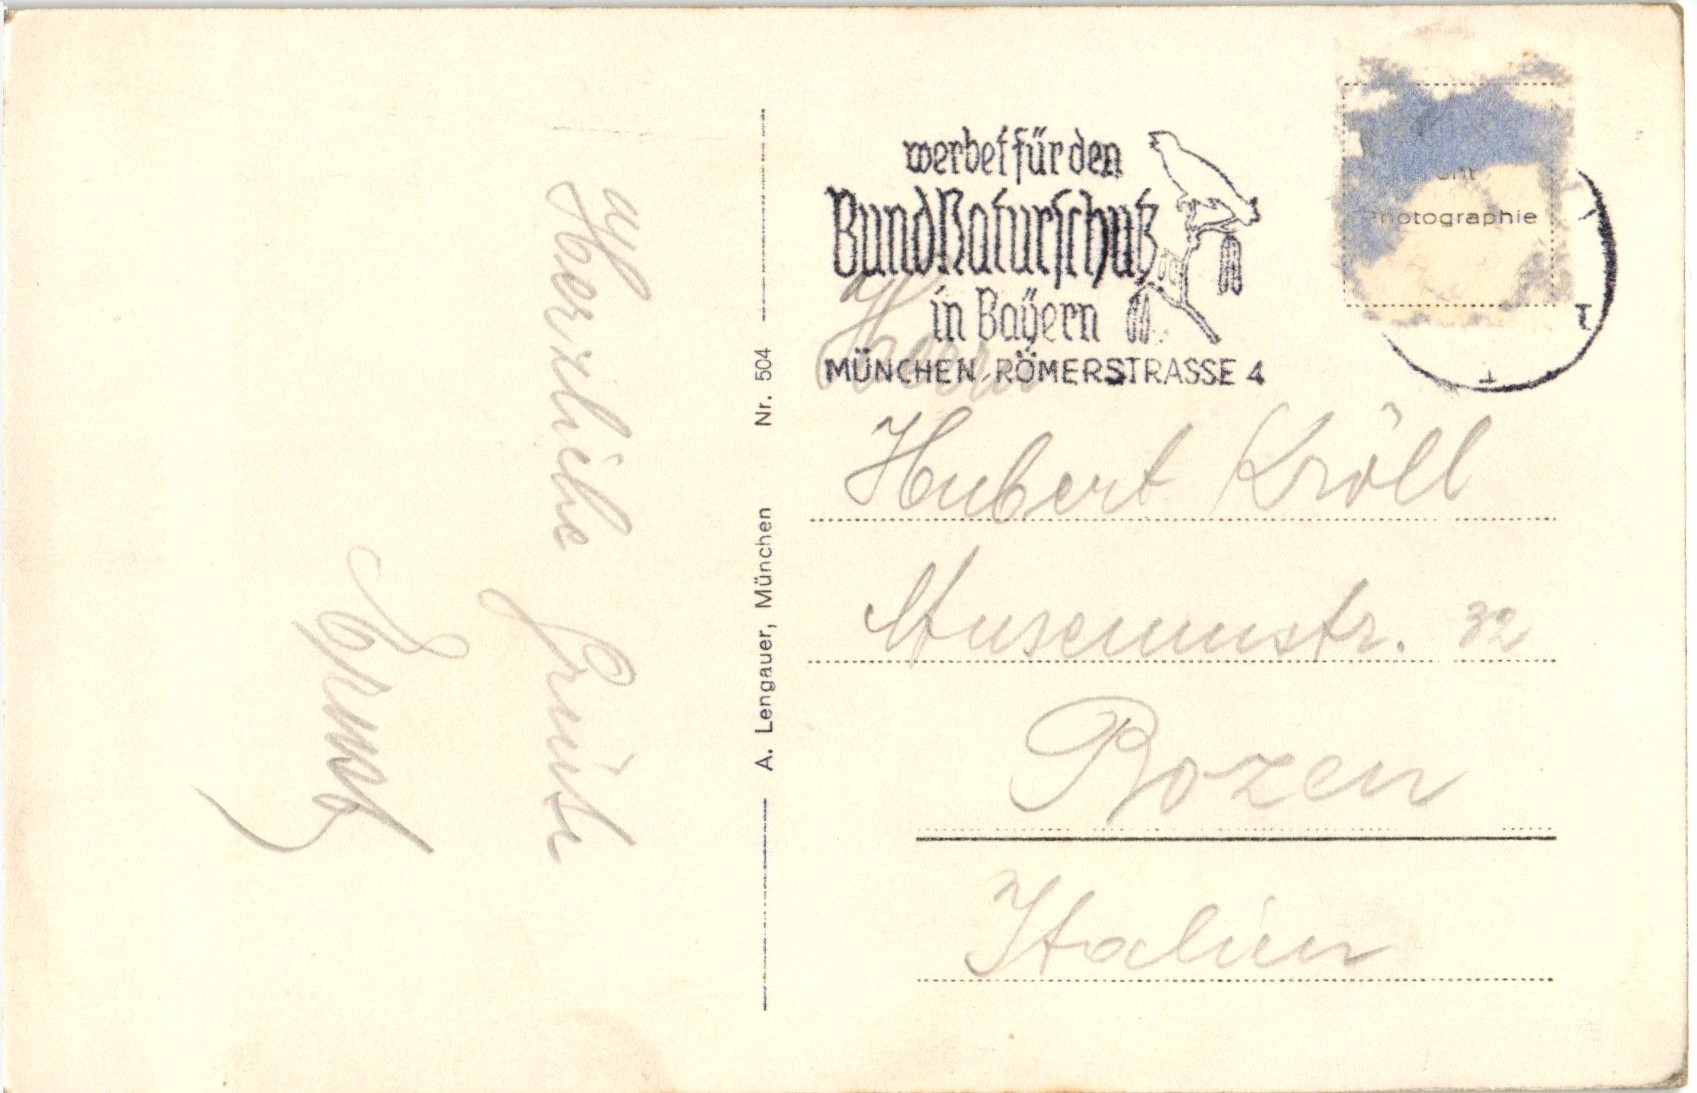 Herzliche Grüße
Ernst
A. Lengauer, München Nr. 504
werbet für den
Bund Naturschutz
in Bayern
MÜNCHEN, RÖMERSTRASSE 4
Photographie
Herrn
Hubert Kröll
Museumstr. 32
Bozen
Italien